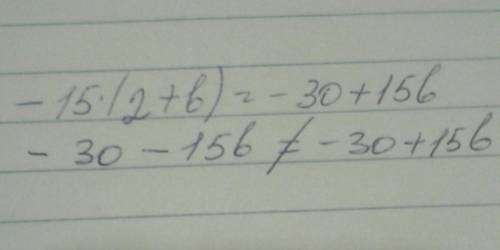 -15·(2+b)=-30+15b
-30-15b≠-30+15b